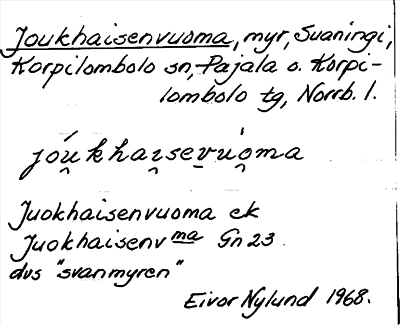 Joukhaisenvuoma, myr, Suaningi,
Korpilombolo sn, Pajala o. Korpi-
lombolo tg, Norrb. l.
jóu̯khai̯sev̱uo̯ma
Juokhaisenvuoma ek
Juokhaisenvma Gn 23
dvs "svanmyren"
Eivor Nylund 1968.